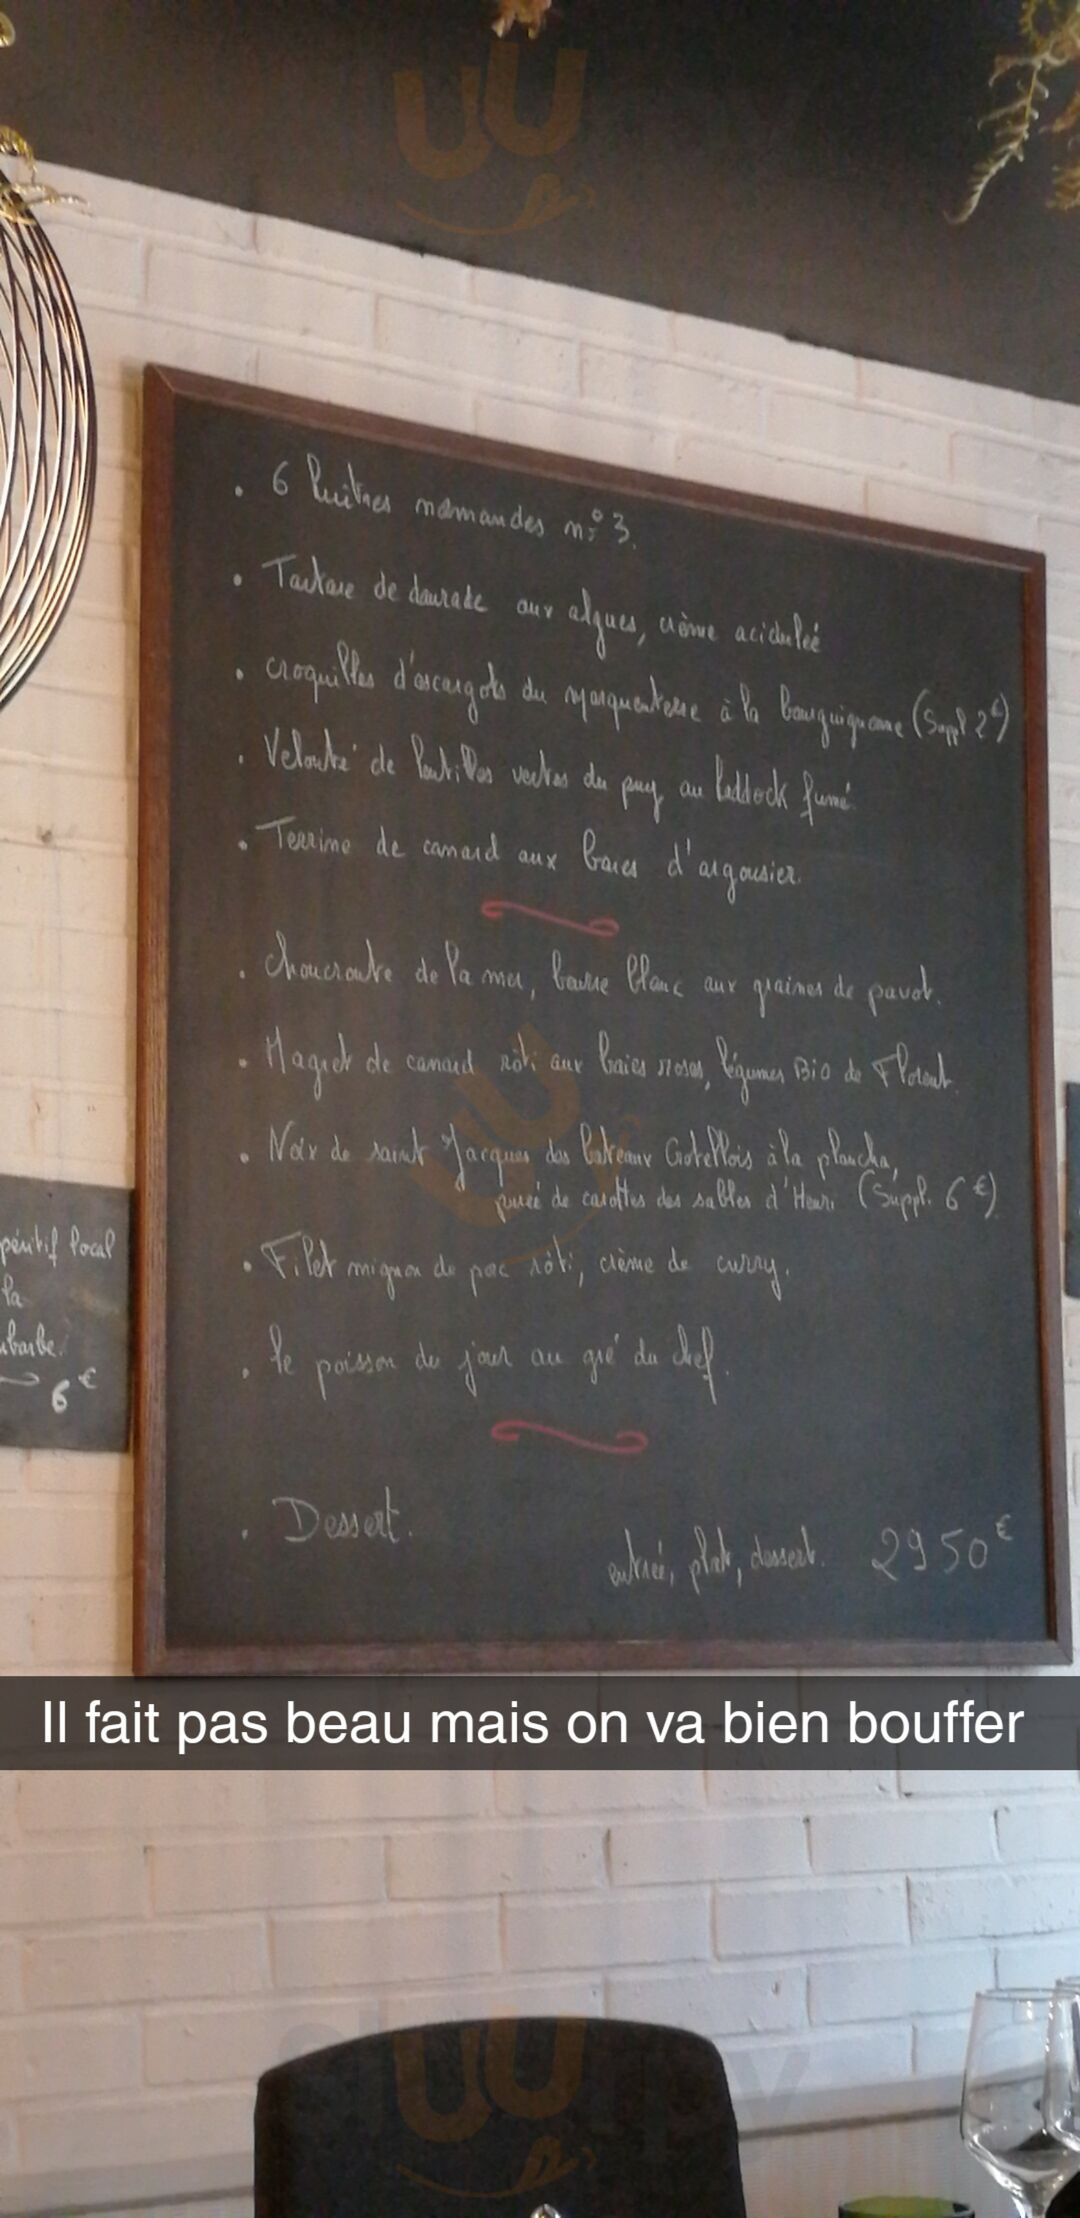 . 6 huîtres normandes n° 3.
. Tartare de daurade aux algues, crème acidulée
. croquilles d'escargots du marquenterre à la bourguignonne (Suppl 2€)
. Velouté de lentilles vertes du puy au haddock fumé
. Terrine de canard aux baies d'argousier.
. choucroute de la mer, beurre blanc aux graines de pavot.
. Magret de canard rôti aux baies roses, légumes Bio de Florent.
. Noix de saint Jacques des bateaux Crotellois à la plancha,
purée de carottes des sables d'Henri (Suppl. 6€)
. Filet mignon de porc rôti, crème de curry.
. le poisson du jour au gré du chef.
. Dessert.
entrée, plat, dessert. 29 50€
péritif local
la
ubarbe.
6€
Il fait pas beau mais on va bien bouffer